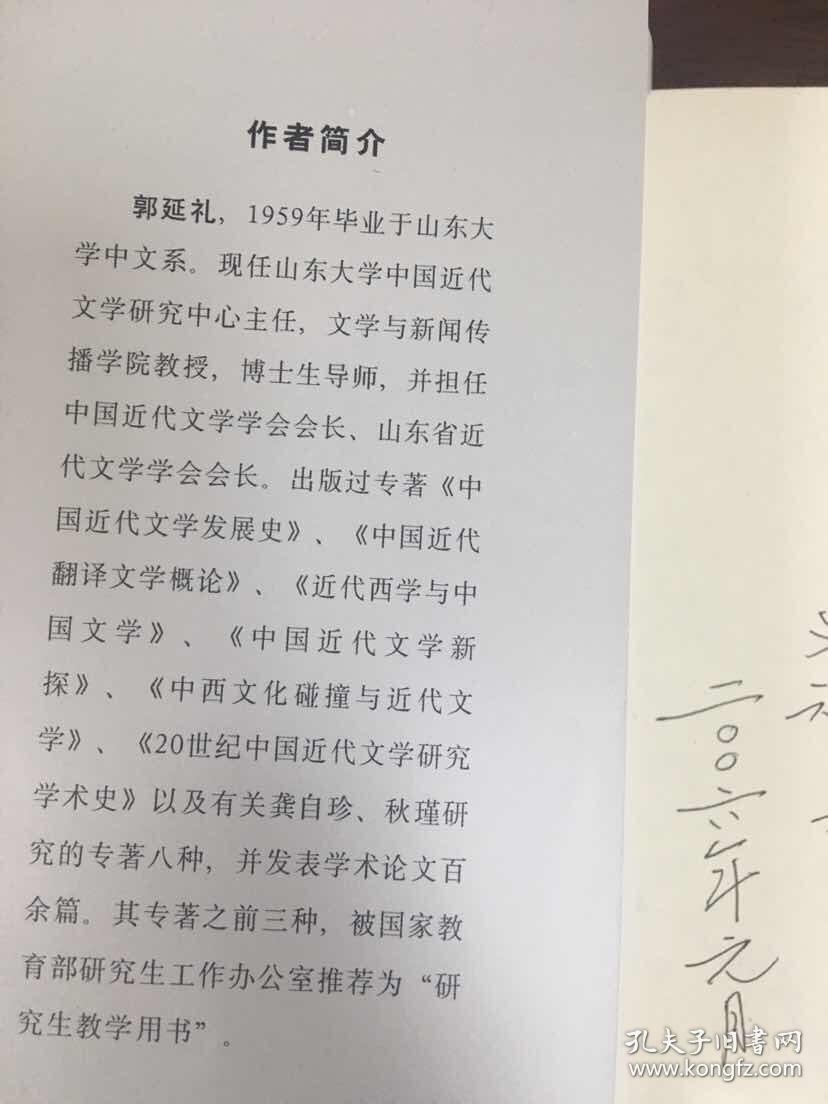 作者简介
郭延礼，1959年毕业于山东大
学中文系。现任山东大学中国近代
文学研究中心主任，文学与新闻传
播学院教授，博士生导师，并担任
中国近代文学学会会长、山东省近
代文学学会会长。出版过专著《中
国近代文学发展史》、《中国近代
翻译文学概论》、《近代西学与中
国文学》、《中国近代文学新
探》、《中西文化碰撞与近代文
学》、《20世纪中国近代文学研究
学术史》以及有关龚自珍、秋瑾研
究的专著八种，并发表学术论文百
余篇。其专著之前三种，被国家教
育部研究生工作办公室推荐为“研
究生教学用书”。
二〇〇六年元月
孔夫子旧书网
www.kongfz.com